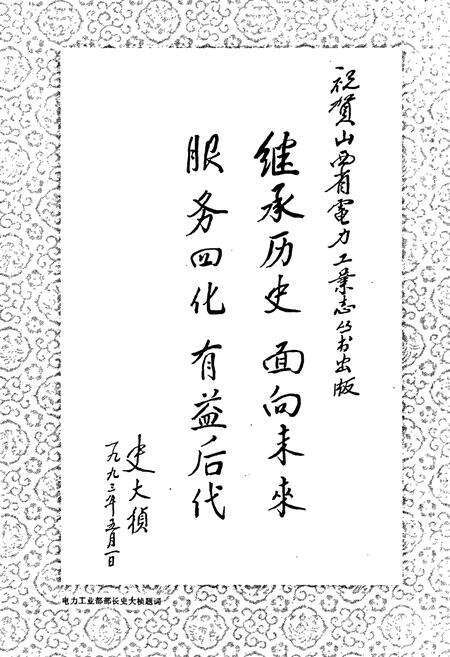 祝贺山西省電力工業志丛书出版
继承历史 面向未來
服务四化 有益后代
史大楨
一九九三年五月一日
电力工业部部长史大桢题词